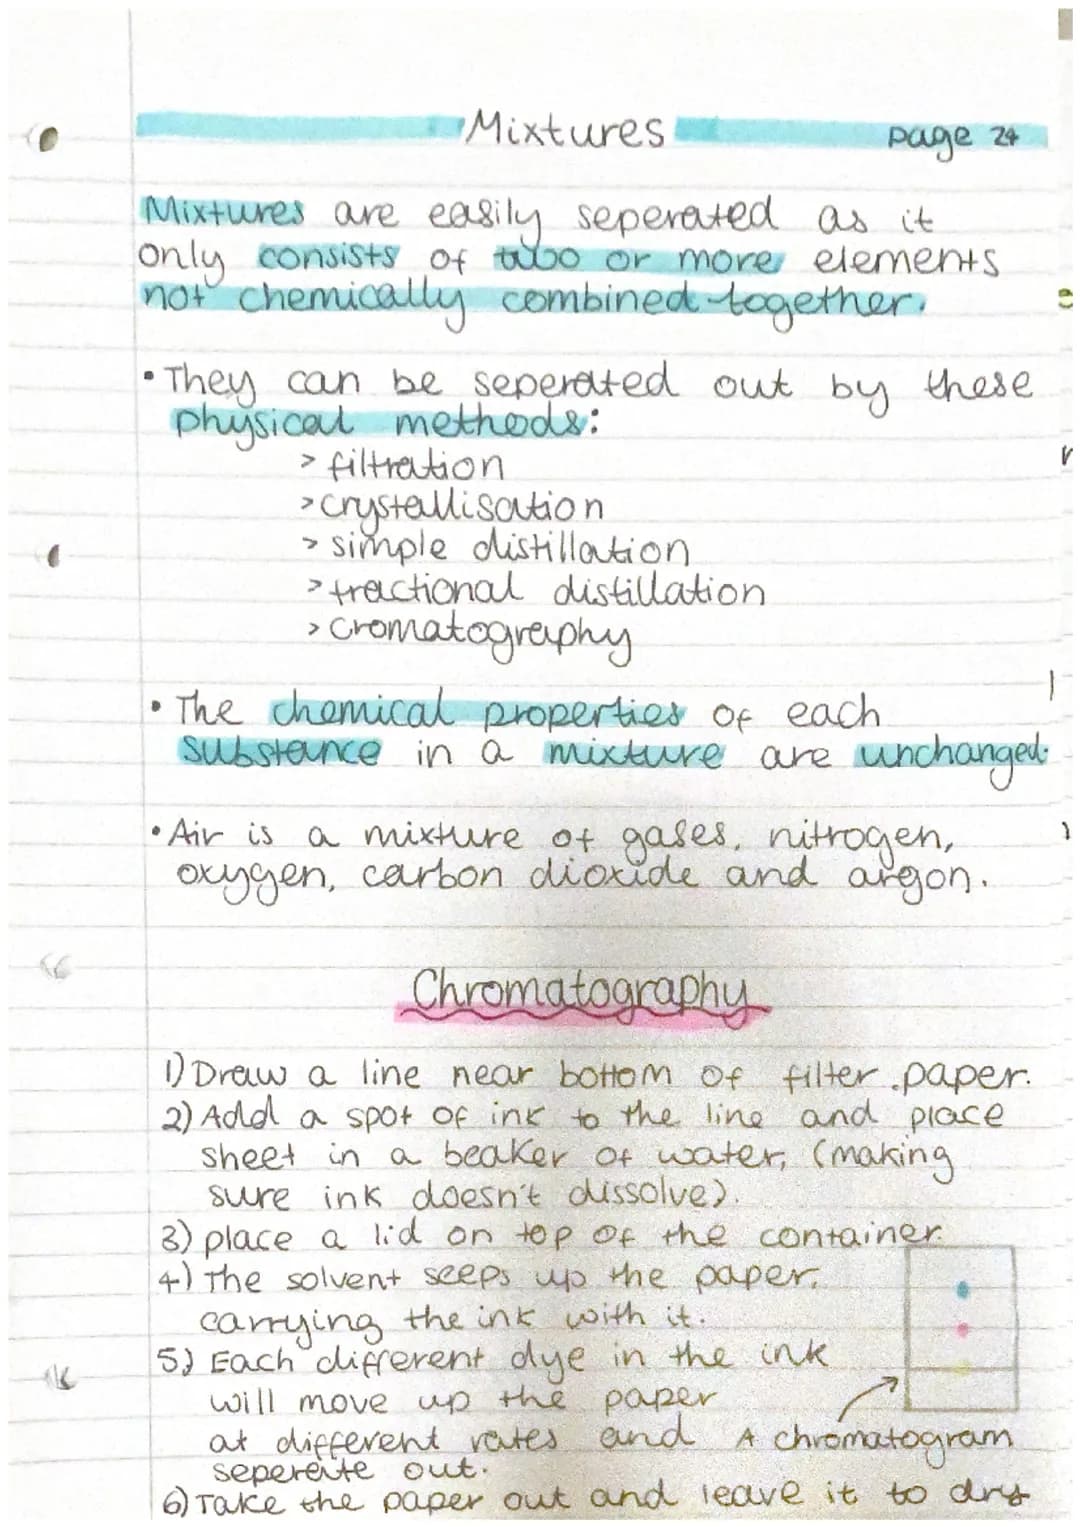 Mixtures
page 24
Mixtures are easily seperated as it
only consists of two or more elements
not chemically combined together.
• They can be seperated out by these
physical methods:
> filtration
> crystallisation
> simple distillation
> fractional distillation
> cromatography
• The chemical properties of each
substance in a mixture are unchanged.
• Air is a mixture of gases, nitrogen,
oxygen, carbon dioxide and argon.
Chromatography
1) Draw a line near bottom of filter paper.
2) Add a spot of ink to the line and place
sheet in a beaker of water, (making
sure ink doesn't dissolve).
3) place a lid on top of the container.
4) The solvent seeps up the paper,
carrying the ink with it.
5) Each different dye in the ink
will move up the paper
at different rates and
seperate out.
A chromatogram
6) Take the paper out and leave it to dry